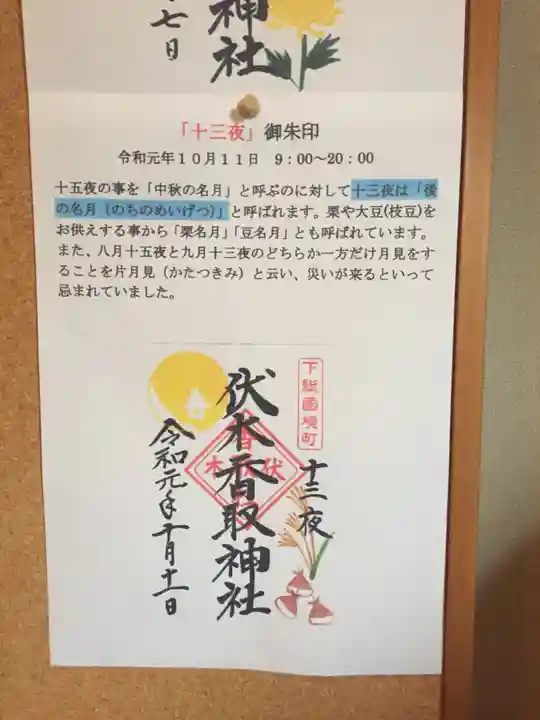 神社
七日
「十三夜」御朱印
令和元年10月11日 9:00~20:00
十五夜の事を「中秋の名月」と呼ぶのに対して十三夜は「後
の名月(のちのめいげつ)」と呼ばれます。栗や大豆(枝豆)を
お供えする事から「栗名月」「豆名月」とも呼ばれています。
また、八月十五夜と九月十三夜のどちらか一方だけ月見をす
ることを片月見(かたつきみ)と云い、災いが来るといって
忌まれていました。
下総国境町
十三夜
伏木香取神社
令和元年十月十一日